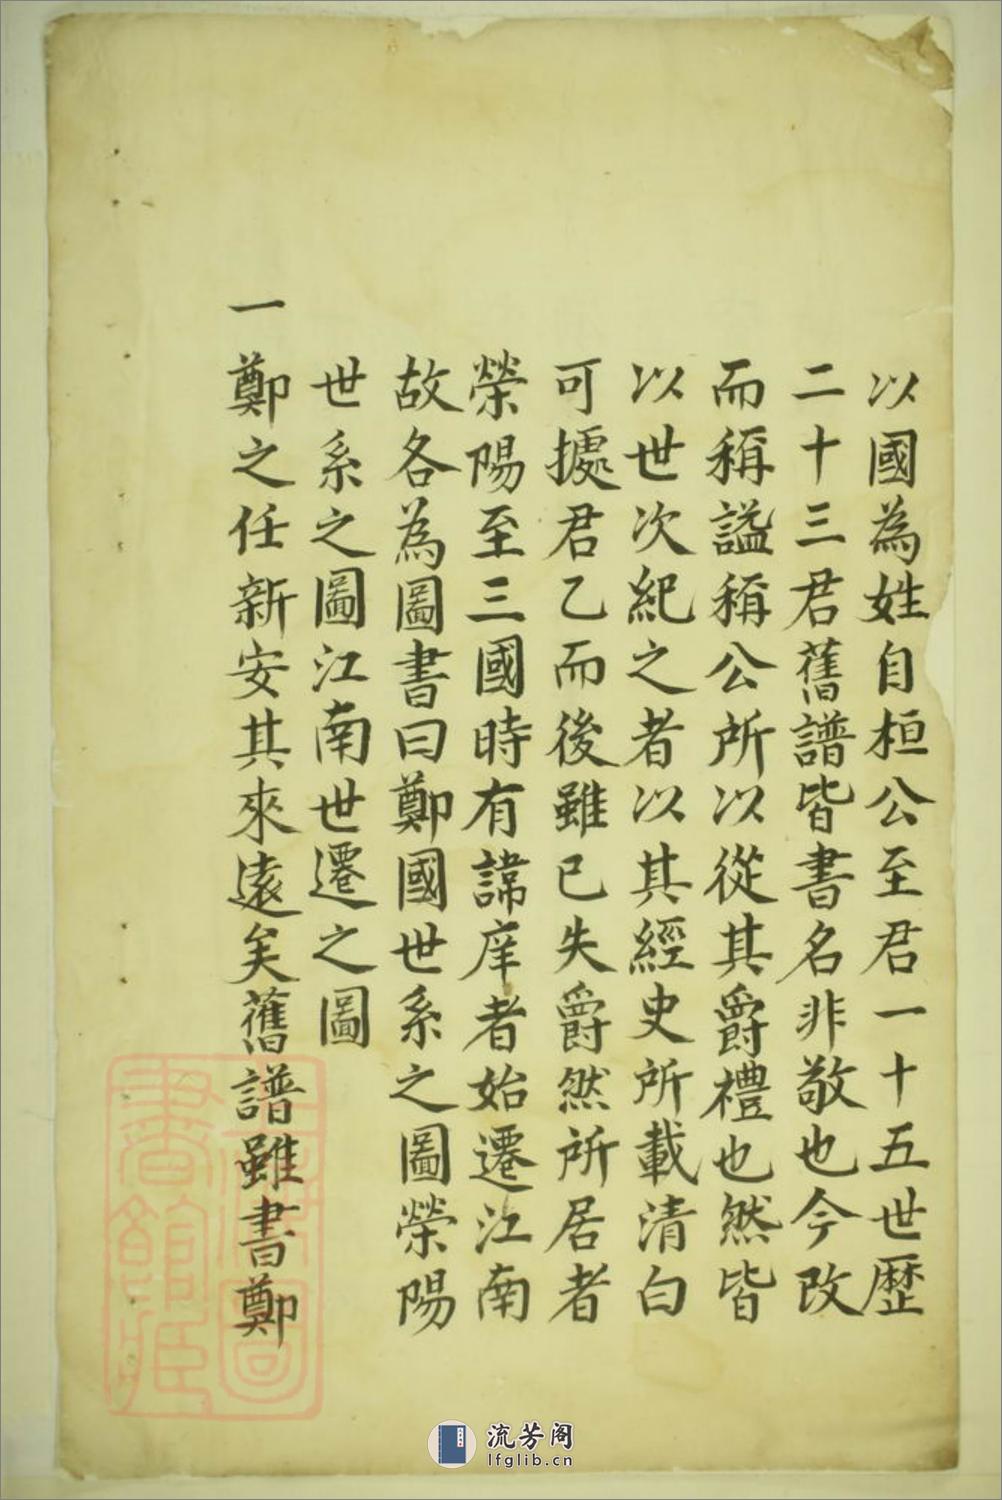 以國為姓自桓公至君一十五世歷
二十三君舊譜皆書名非敬也今改
而稱謚稱公所以從其爵禮也然皆
以世次紀之者以其經史所載清白
可㨿君乙而後雖已失爵然所居者
榮陽至三國時有諱庠者始遷江南
故各為圖書曰鄭國世系之圖榮陽
世系之圖江南世遷之圖
一鄭之任新安其來遠矣舊譜雖書鄭
流芳阁
lfglib.cn